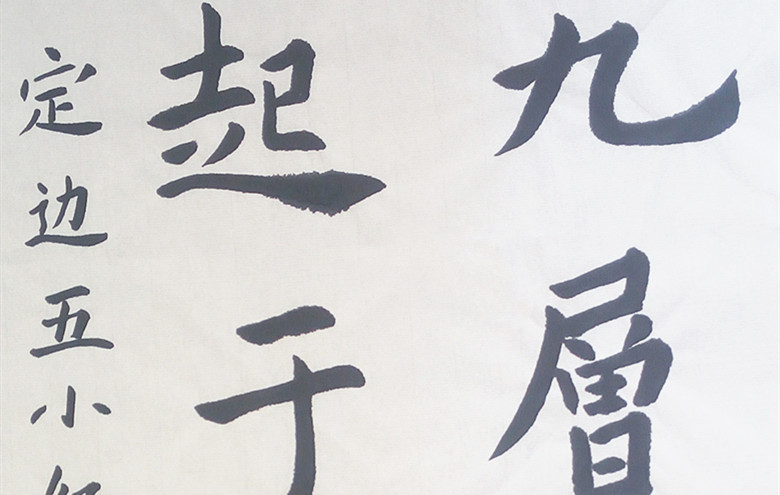 九層
起于
定边五小